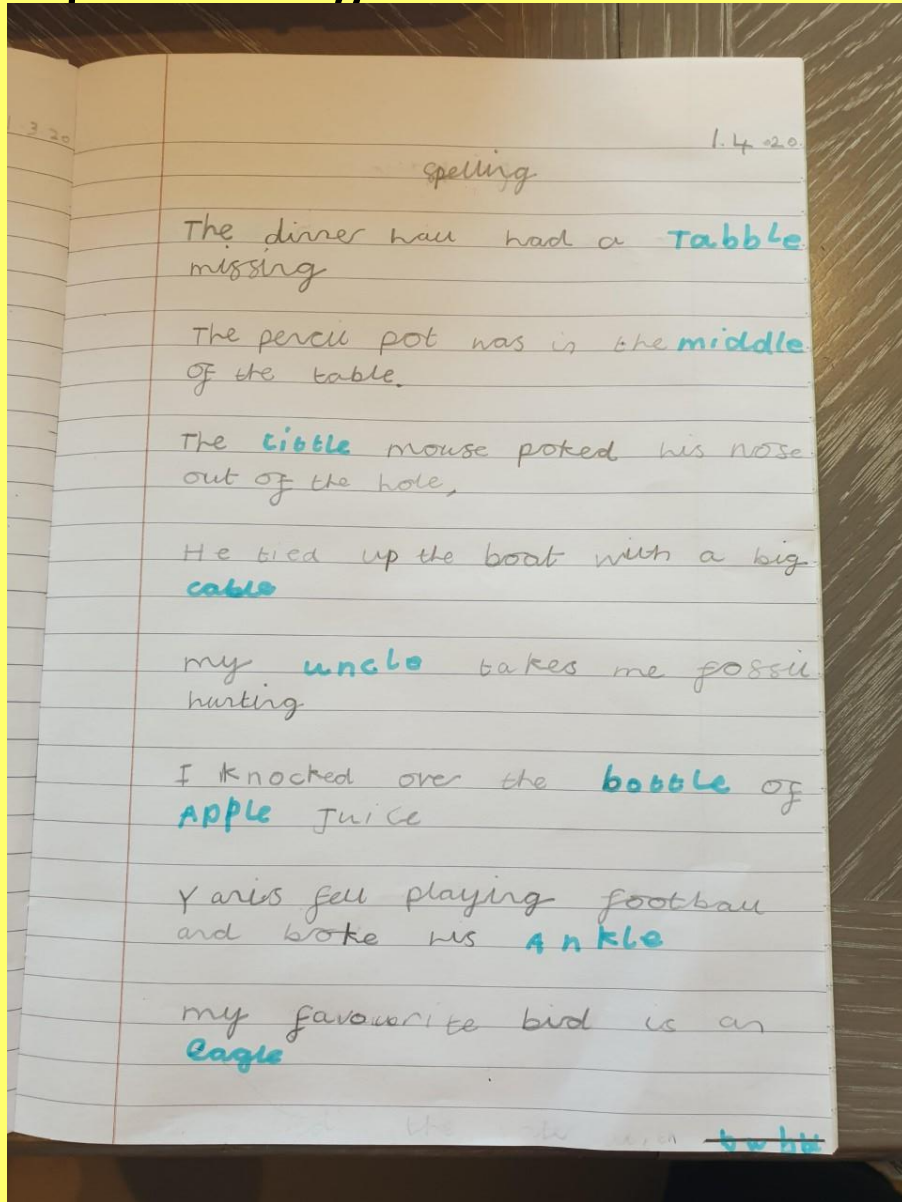 3 20
1.4.20.
spelling
The dinner hall had a Tabble
missing
The pencil pot was in the middle
of the table.
The little mouse poked his nose
out of the hole,
He tied up the boat with a big
cable
my uncle takes me fossil
hunting
I knocked over the bottle of
Apple Juice
Yanis fell playing football
and broke his Ankle
my favourite bird is an
eagle
the